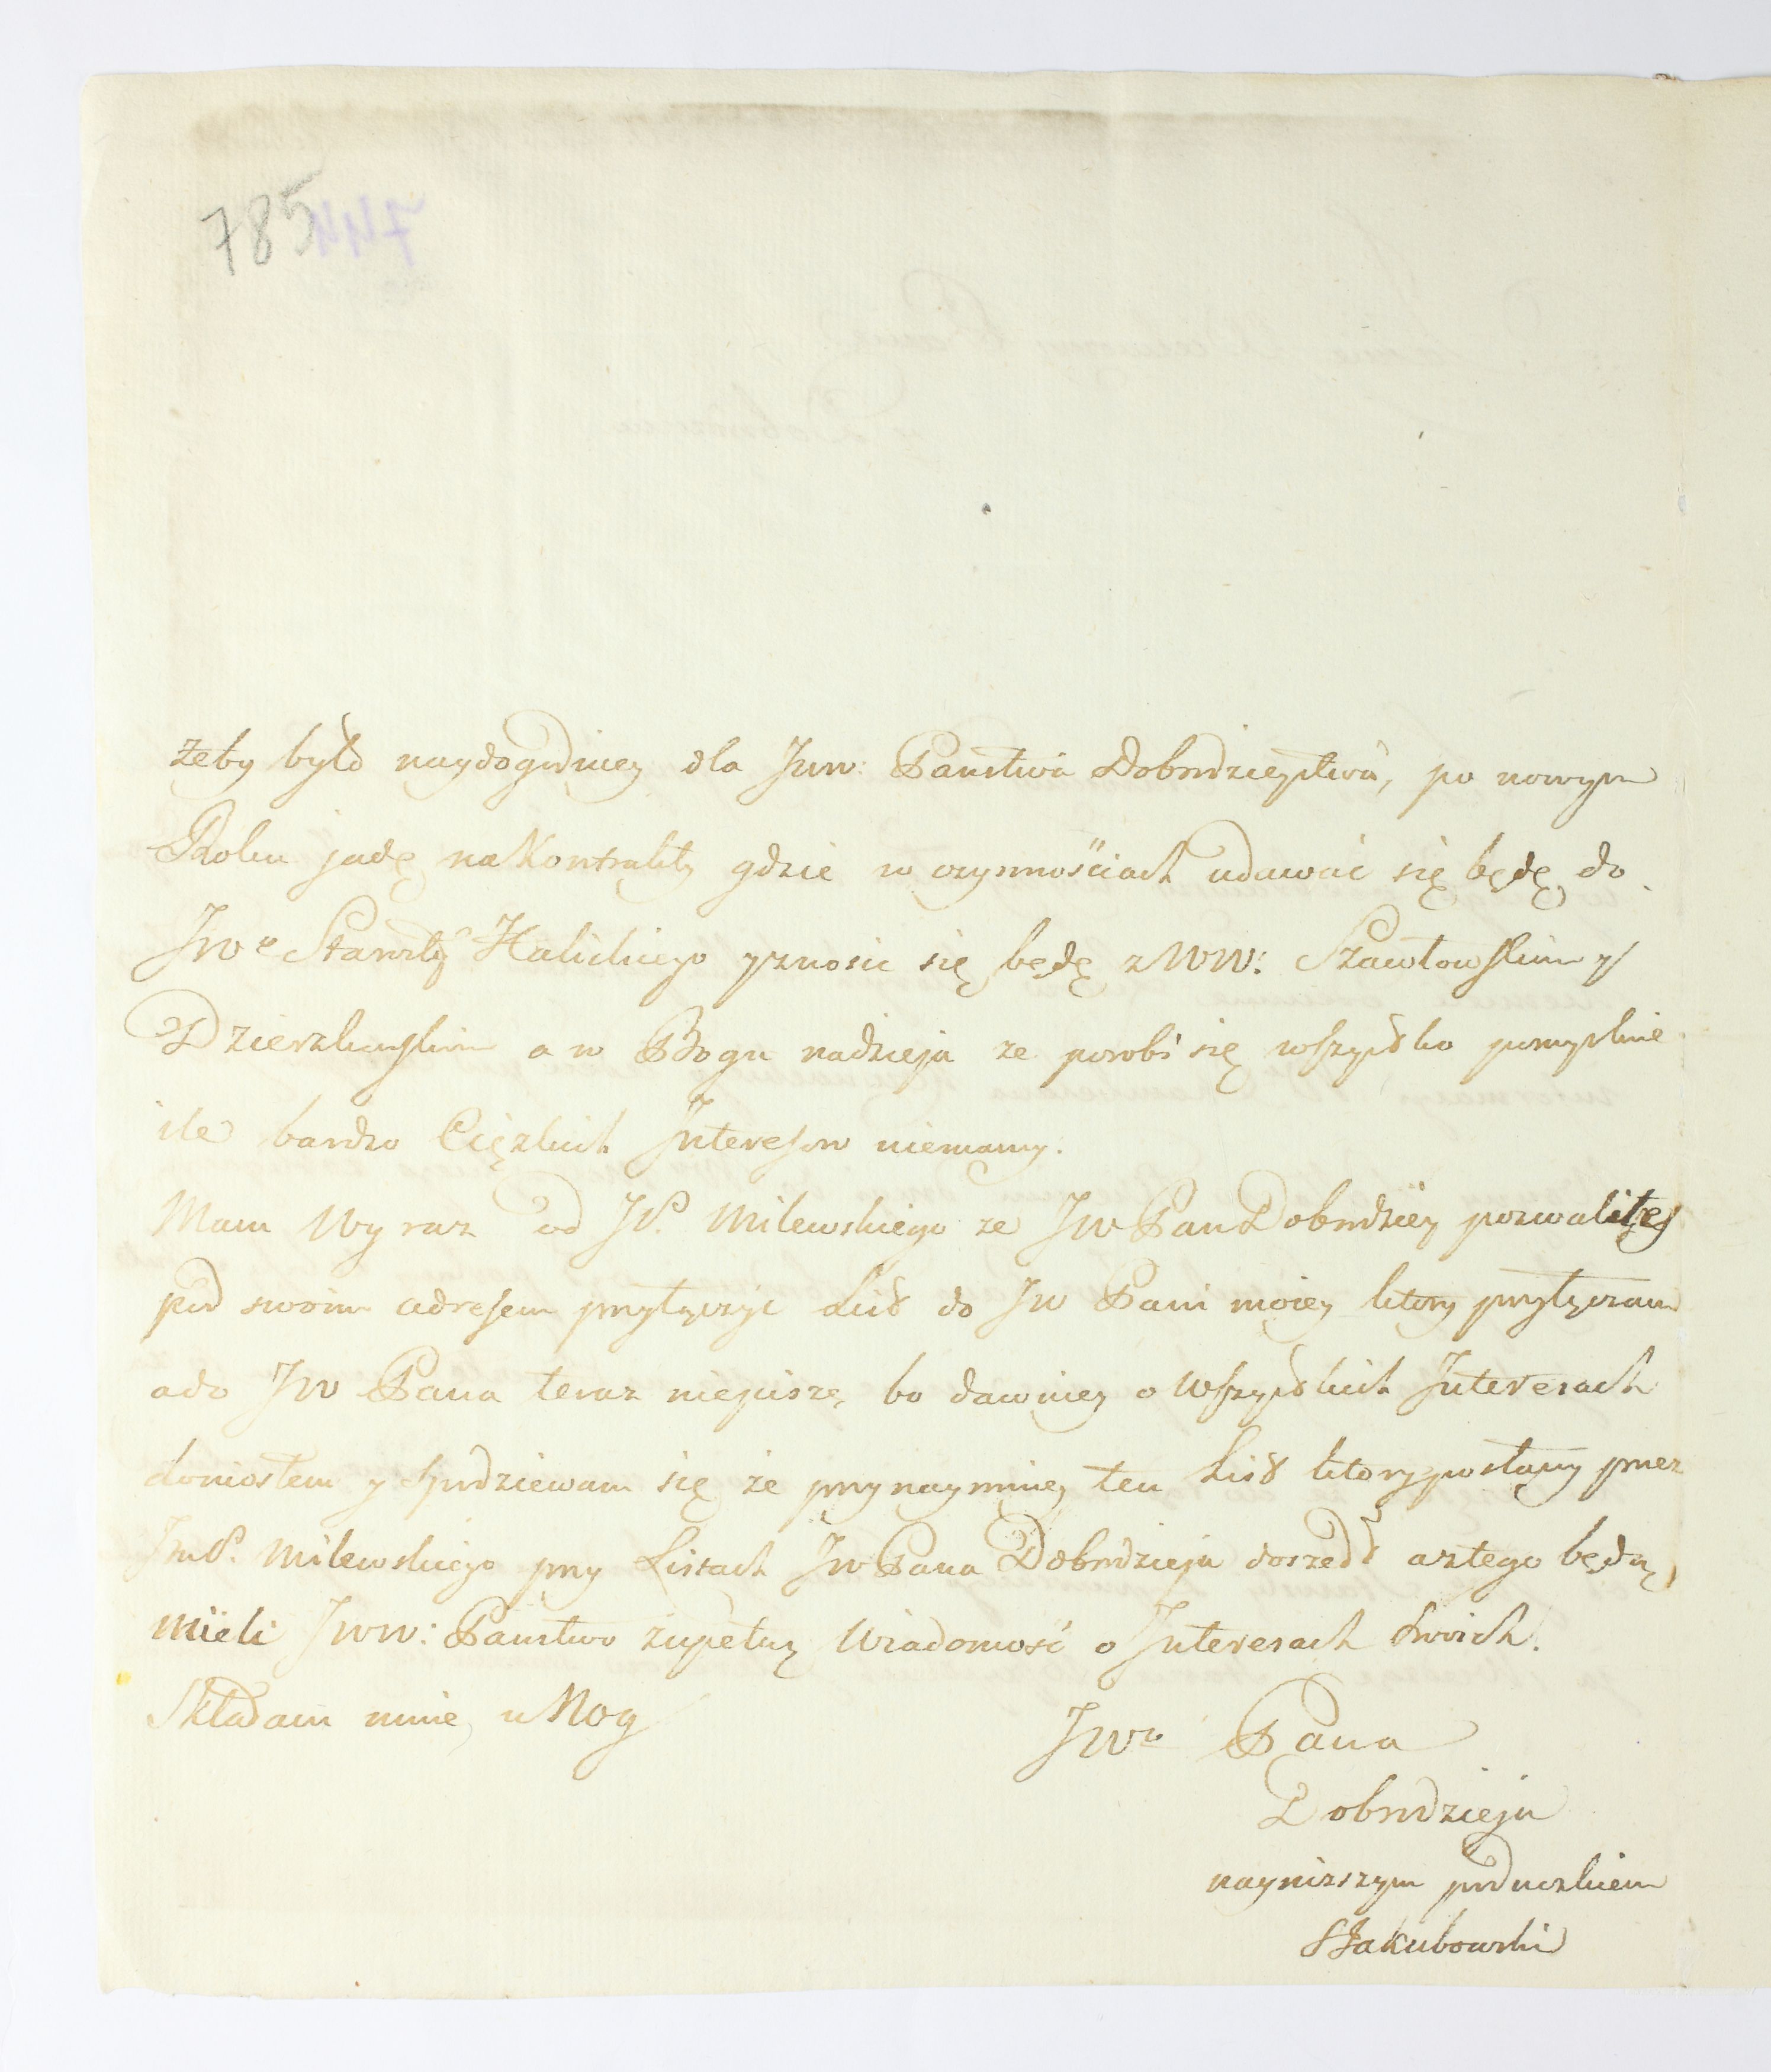 785
żeby było naydogodniey dla Jww: Państwa Dobrodzieystwa, po nowym
Roku jadę na Kontrakty gdzie w czynnościach udawać się będę do
JWo Starosty Halickiego y znosic się będę z WW: Szawłowskim y
Dzierzkuskim a w Bogu nadzieja ze porobi się wszystko pomyslnie
ile bardzo Cięzkich Interesow niemamy.
Mam Wyraz od JP. Milewskiego ze JW Pan Dobrodziey pozwalitęs
pod swoim adresem przyłączyc List do JW Pani moiey ktory przyłączam
a do JW Pana teraz niepisze, bo dawniey o wszystkich Interesach
doniosłem y spodziewam się że przynaymniey ten List ktory posłany przez
JmP. Milewskiego przy Listach JW Pana Dobrodzieja doszedł a z tego będą
mieli Jww: Państwo zupełną Wiadomość o Interesach Swoich.
Składam mnie u Nog
JWo Pana
Dobrodzieja
naynizszym podnozkiem
SJakubowski